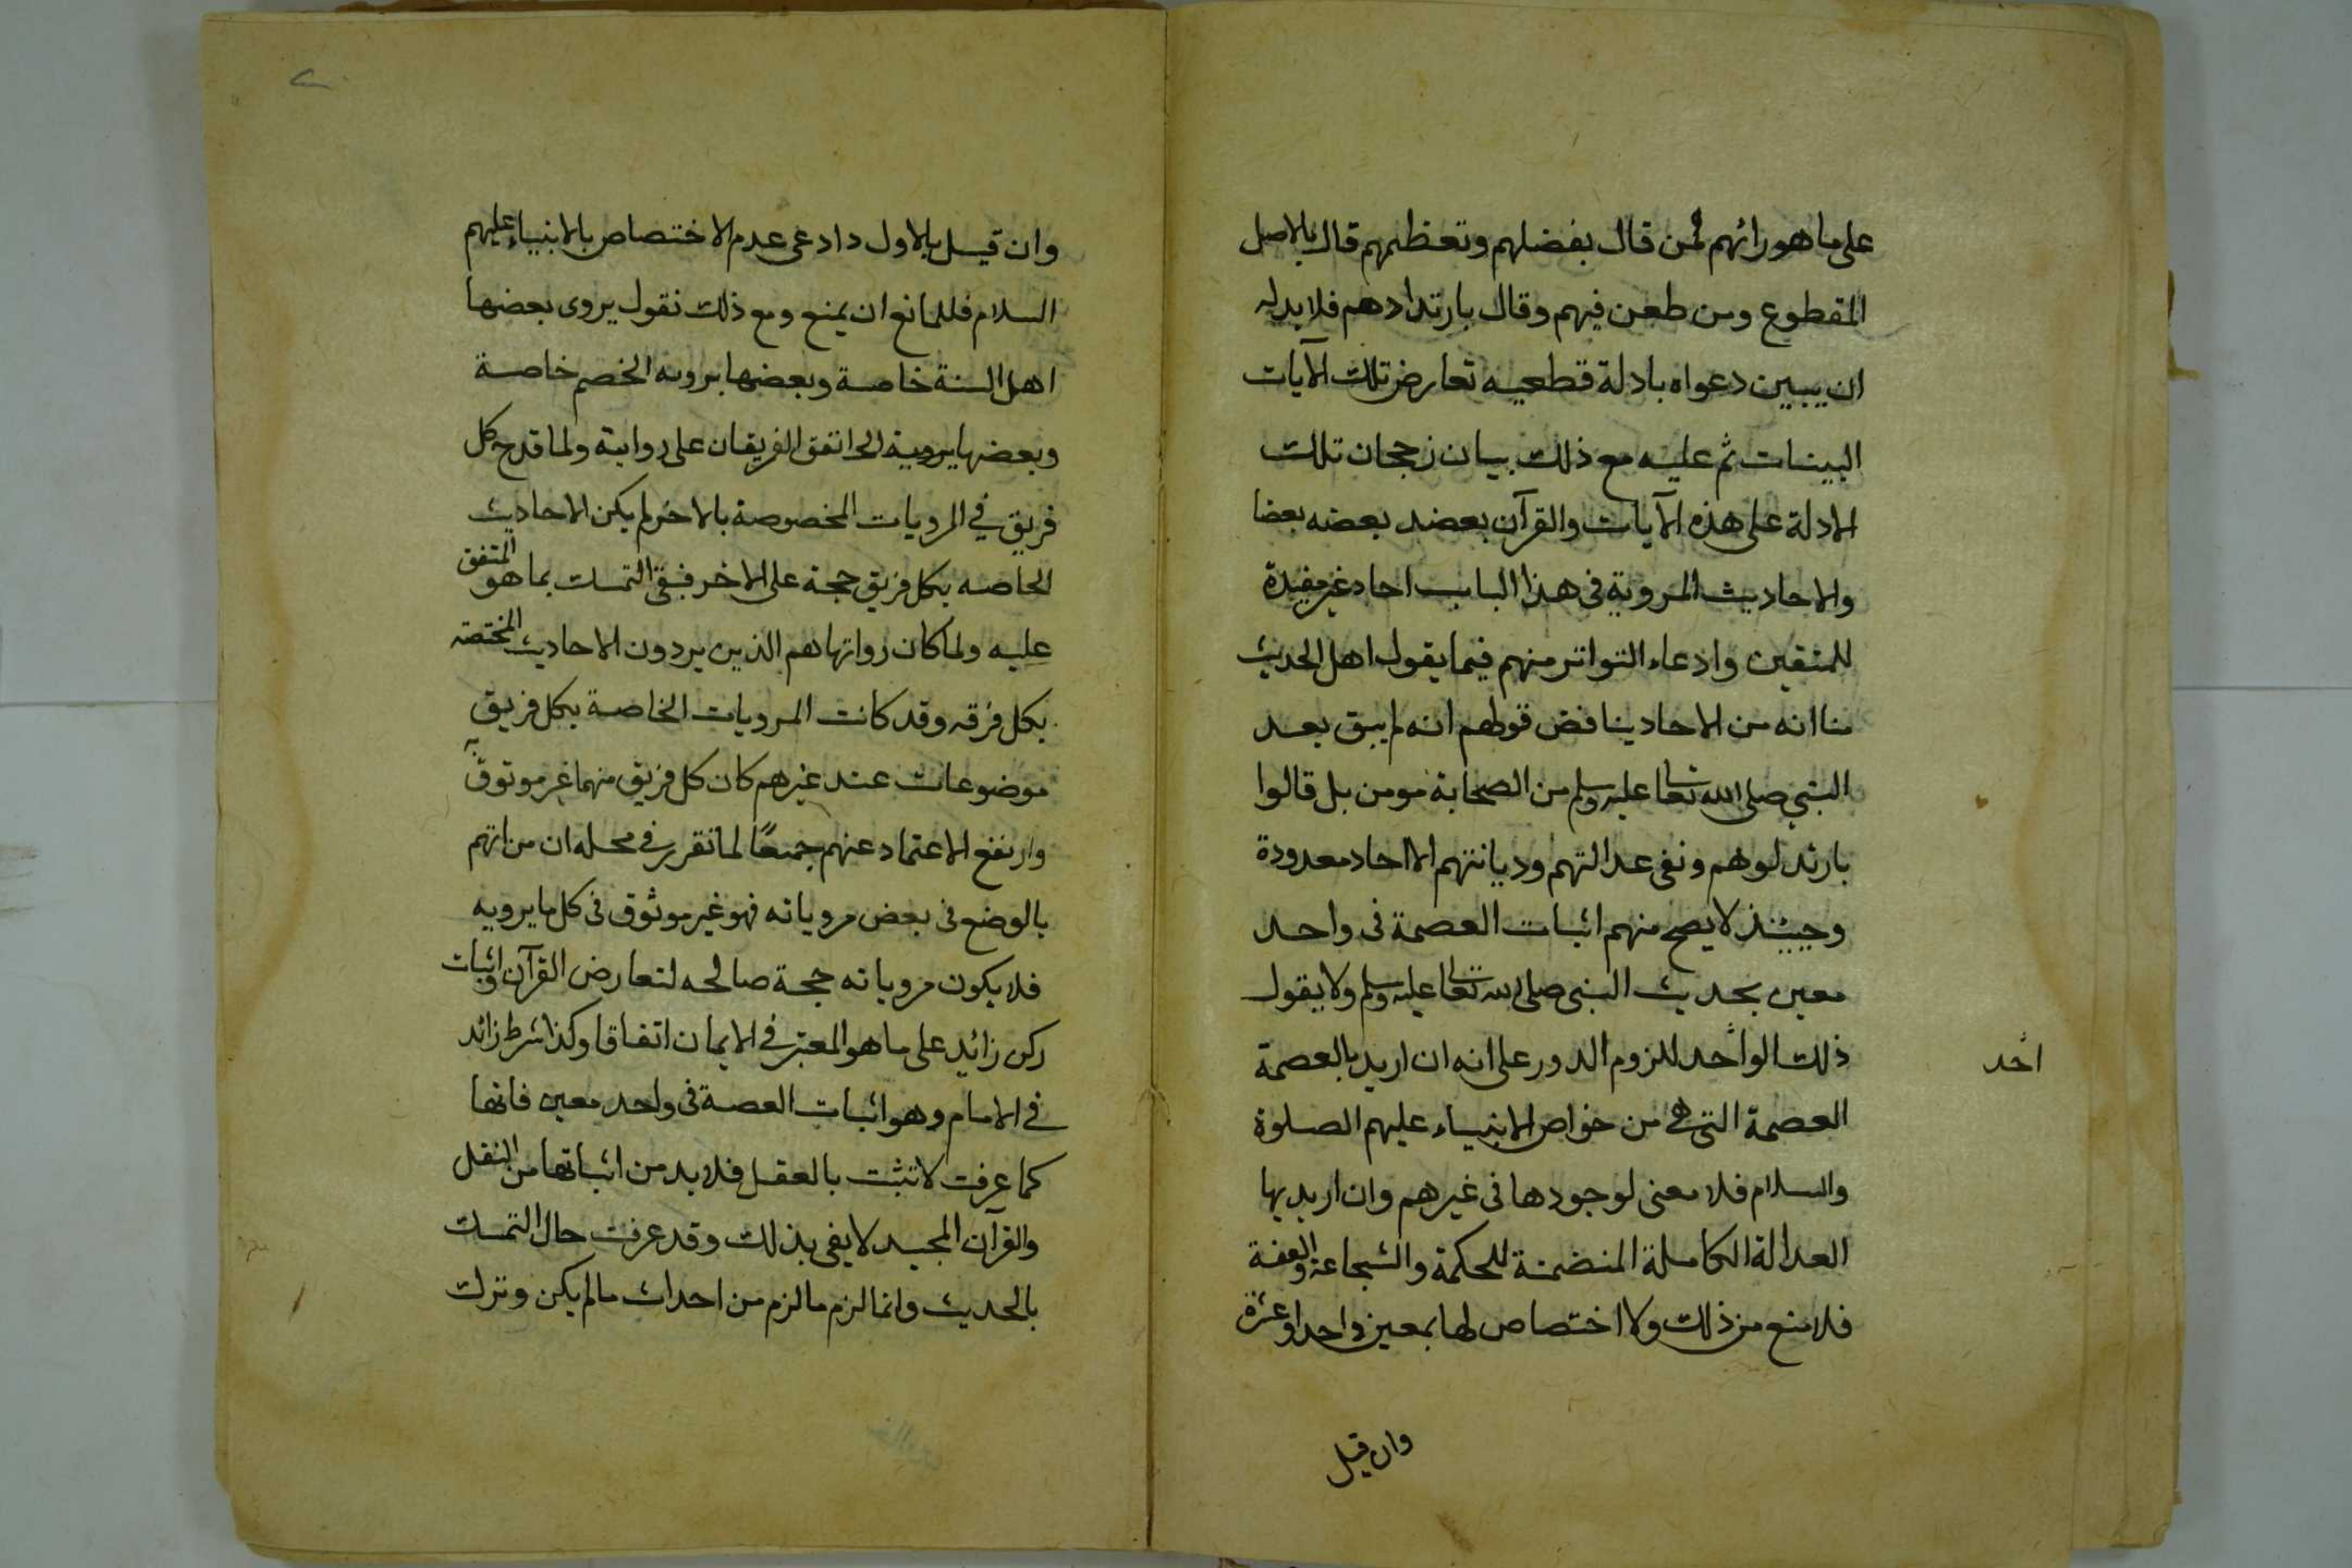 على ما هو رائهم فمن قال بفضلهم وتعظيمهم قال بالاصل
المقطوع ومن طعن فيهم وقال بارتدادهم فلا بد له
ان يبين دعواه بادلة قطعيه تعارض تلك الآيات
البينات ثم عليه مع ذلك بيان رجحان تلك
الادلة على هذه الآيات والقرآن يعضد بعضه بعضا
والاحاديث المروية في هذا الباب احاد غير مفيدة
للمتقين وادعاء التواتر منهم فيما يقول اهل الحديث
منا انه من الاحاد يناقض قولهم انه لم يبق بعد
النبي صلى الله تعالى عليه وسلم من الصحابة مومن بل قالوا
بارتدلوهم ونفى عدالتهم وديانتهم الا احاد معدودة
وحينئذ لا يصح منهم اثبات العصمة في واحد
معين بحديث النبي صلى الله تعالى عليه وسلم ولا يقول
ذلك الواحد للزوم الدور على انه ان اريد بالعصمة
احد
العصمة التي هي من خواص الانبياء عليهم الصلوة
والسلام فلا معنى لوجودها في غيرهم وان اريد بها
العدالة الكاملة المتضمنة للحكمة والشجاعة والعفة
فلا منع من ذلك ولا اختصاص لها بمعين واحد او عشرة
وان قيل
وان قيل بالاول دادعى عدم الاختصاص بالانبياء عليهم
السلام فللمانع ان يمنع ومع ذلك نقول يروى بعضها
اهل السنة خاصة وبعضها يرويه الخصم خاصة
وبعضها يرويه اتفق الفريقان على روايته ولما قدح كل
فريق في المرويات المخصوصة بالاخر لم يكن الاحاديث
الخاصه بكل فريق حجة على الاخر فبقى التمسك بما هو المتفق
عليه ولما كان رواتها هم الذين يردون الاحاديث المختصه
بكل فرقه وقد كانت المرويات الخاصة بكل فريق
موضوعات عند غيرهم كان كل فريق منهما غير موثوق به
وارتفع الاعتماد عنهم جميعًا لما تقرر في محله ان من اتهم
بالوضع في بعض مروياته فهو غير موثوق في كل ما يرويه
فلا يكون مروياته حجة صالحه لتعارض القرآن واثبات
ركن زائد على ما هو المعتبر في الايمان اتفاقا وكذا شرط زائد
في الامام وهو اثبات العصة في واحد معين فانها
كما عرفت لا تثبت بالعقل فلا بد من اثباتها من النقل
والقرآن المجيد لا يفي بذلك وقد عرفت حال التمسك
بالحديث وانما لزم ما لزم من احداث ما لم يكن وترك